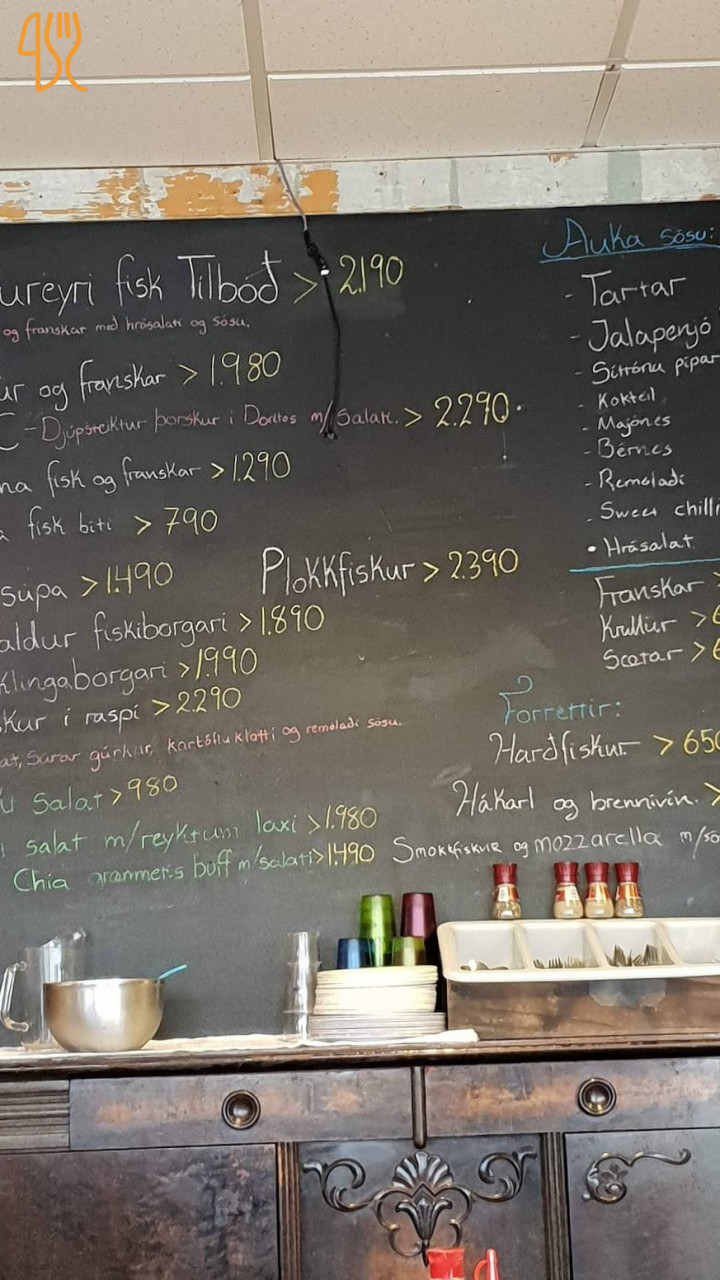 ureyri fisk Tilboð > 2.190
og franskar með hrásalati og sósu.
ur og franskar > 1.980
C - Djúpsteiktur þorskur í Doritos m/Salati. > 2.290.
na fisk og franskar > 1.290
fisk biti > 790
súpa > 1.490
Plokkfiskur > 2.390
aldur fiskiborgari > 1.890
klingaborgari > 1.990
skur í raspi > 2.290
at, Súrar gúrkur, kartöfluklatti og remolaði sósu.
Salat > 980
salat m/reyktum laxi > 1.980
Chia grænmetis buff m/salati > 1.490
Auka sósu:
- Tartar
- Jalapenjó
- Sítrónu pipar
- Kokteil
- Majónes
- Bérnes
- Remolaði
- Sweet chilli
• Hrásalat
Franskar >
Krullur > 6
Scatar > 6
Forréttir:
Harðfiskur > 650
Hákarl og brennivín. >
Smokkfiskur og mozzarella m/só